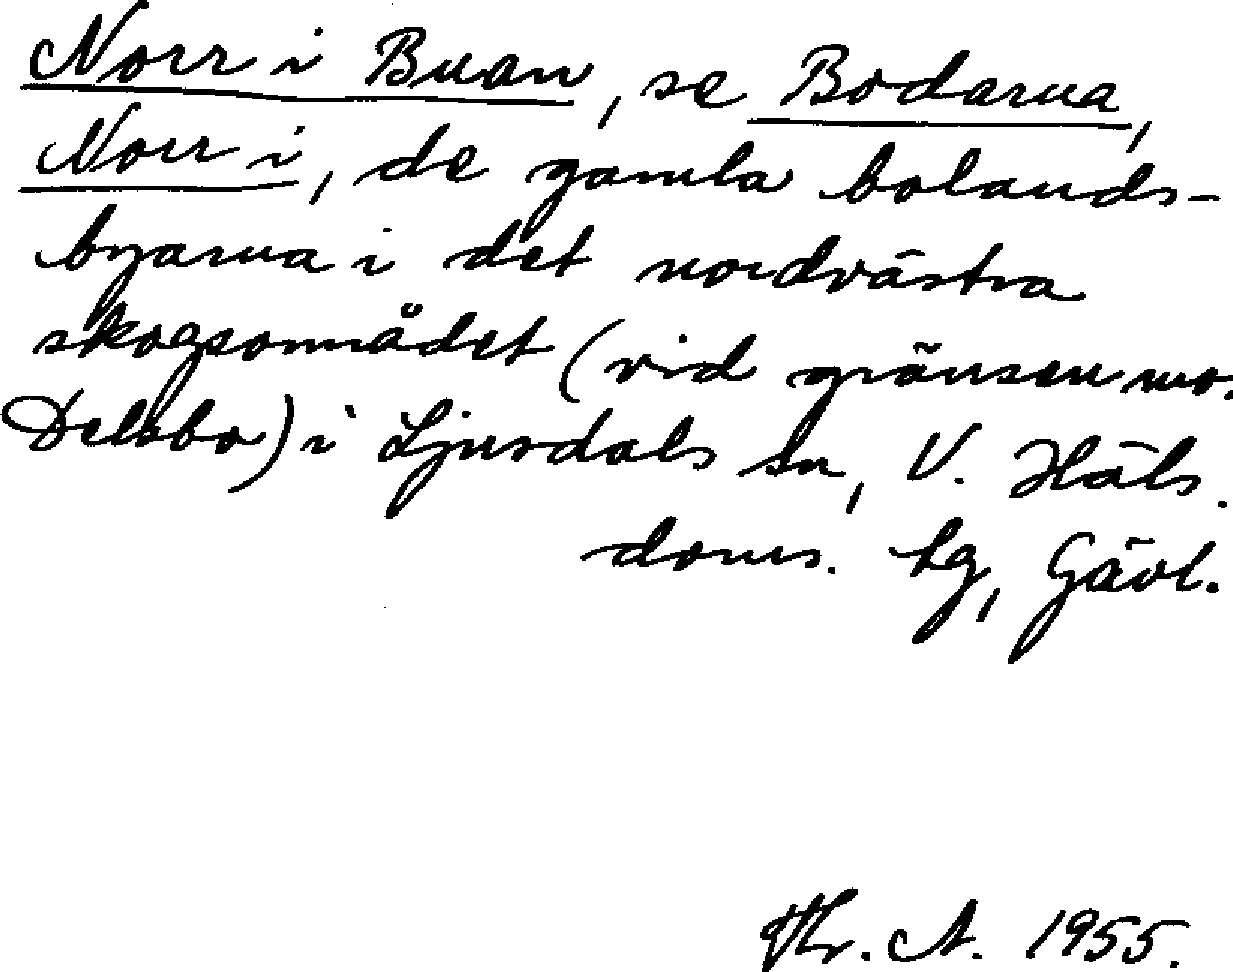 Norr i Buan, se Bodarna,
Norr i, de gamla bolands-
byarna i det nordvästra
skogsområdet (vid gränsen mo.
Delsbo) i Ljusdals sn, V. Häls.
doms. hg, Gävl.
Hr. A. 1955.